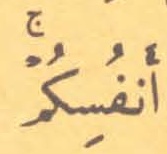 أَنفُسِكُمْۚ